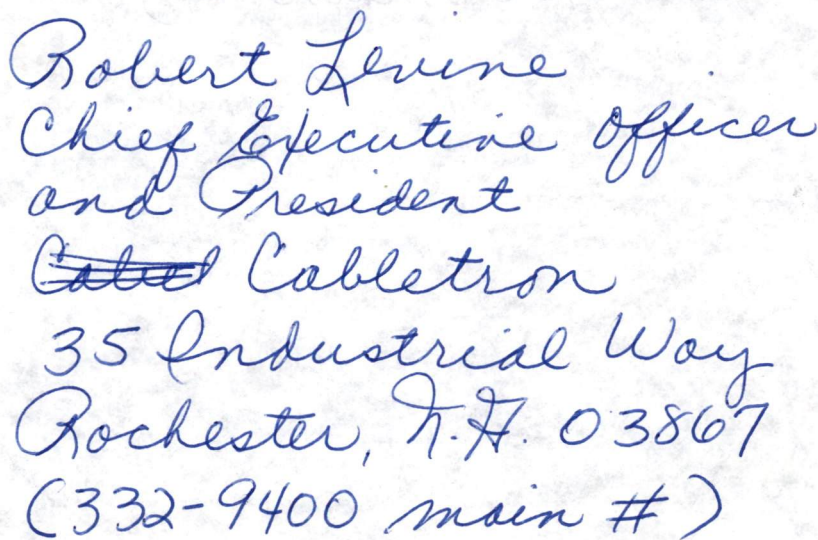 Robert Levine
Chief Executive Officer
and President
Cabletron
35 Industrial Way
Rochester, N.H. 03867
(332-9400 main #)